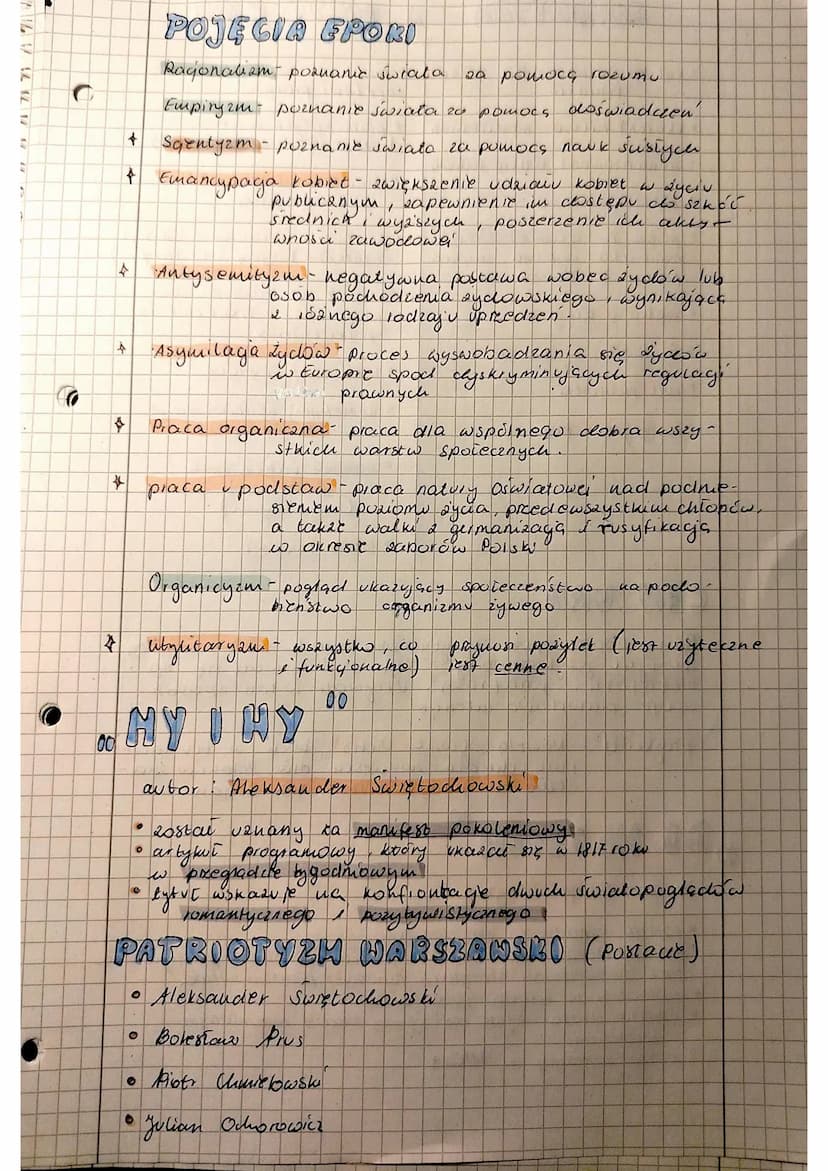 POJĘCIA EPOKI
Racjonalizm - poznanie świata za pomocą rozumu
Empiryzm - poznanie świata za pomocą doświadczeń
Scjentyzm - poznanie świata za pomocą nauk ścisłych
Emancypacja kobiet - zwiększenie udziału kobiet w życiu
publicznym, zapewnienie im dostępu do szkół
średnich i wyższych, poszerzenie ich akty-
wności zawodowej
Antysemityzm - negatywna postawa wobec żydów lub
osób pochodzenia żydowskiego, wynikająca
z różnego rodzaju uprzedzeń.
Asymilacja żydów - proces wyswobadzania się żydów
w Europie spod dyskryminujących regulacji
prawnych
Praca organiczna - praca dla wspólnego dobra wszy-
stkich warstw społecznych.
praca u podstaw - praca natury oświatowej nad podnie-
sieniem poziomu życia, przedewszystkim chłopów,
a także walki z germanizacją i rusyfikacją
w okresie zaborów Polski
Organicyzm - pogląd ukazujący społeczeństwo na podo-
bieństwo organizmu żywego
Utylitaryzm - wszystko, co przynosi pożytek (jest użyteczne
i funkcjonalne) jest cenne.
"MY I MY"
autor: Aleksander Świętochowski
• został uznany za manifest pokoleniowy
• artykuł programowy, który ukazał się w 1817 roku
w przeglądzie tygodniowym
• tytuł wskazuje na konfrontację dwuch światopoglądów
romantycznego i pozytywistycznego
PATRIOTYZM WARSZAWSKI (Postacie)
• Aleksander Świętochowski
• Bolesław Prus
• Piotr Chmielowski
• Julian Ochorowicz